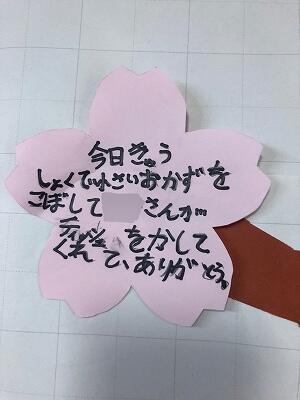 今日きゅう
しょくで小さいおかずを
こぼして さんが
ティッシュをかして
くれて、ありがとう。